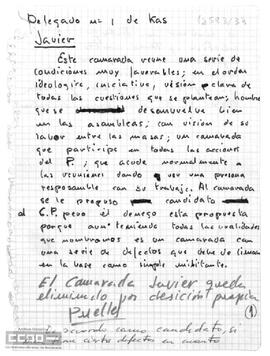 Delegado nº 1 de Kas
12583/33
Javier
Este camarada reune una serie de
condiciones muy favorables; en el orden
ideologico, iniciativa, visión clava de
todas las cuestiones que se plantean, hombre
que se desenvuelve bien
en las asambleas; con visión de su
labor entre las masas; un camarada
que participa en todas las acciones
del P.; que acude normalmente a
las reuniones dando ver una persona
responsable con su trabajo. Al camarada
se le propuso candidato
al C.P. pero el denego esta propuesta
porque aun teniendo todas las cualidades
que nombramos es un camarada con
una serie de defectos que debe de
en la base como simple militante.
El Camarada Javier queda
eliminado por desición propia
①
De acuerdo como candidato, si
ciertos defectos en cuanto
CCOO